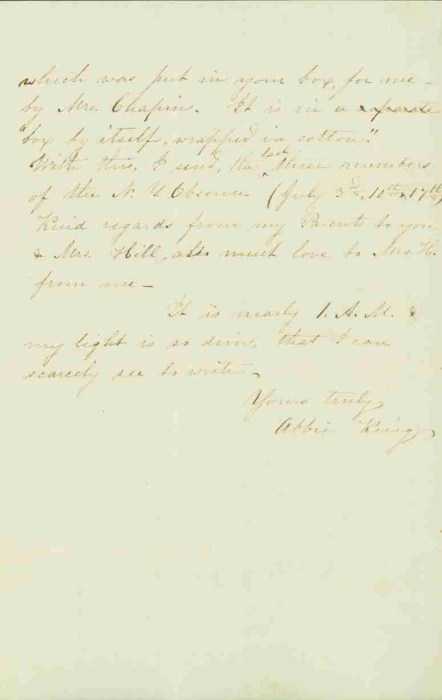 which was put in your box, for me -
by Mrs. Chapin. It is in a separate
"box by itself, wrapped in cotton."
With this, I send, the last three numbers
of the N. Y Observer (July 3d, 10th & 17th)
Kind regards from my Parents to you
& Mrs. Hill, also much love to Mrs. H.
from me -
It is nearly 1. A. M. &
my light is so dim, that I can
scarcely see to write.
Yours truly,
Abbie King